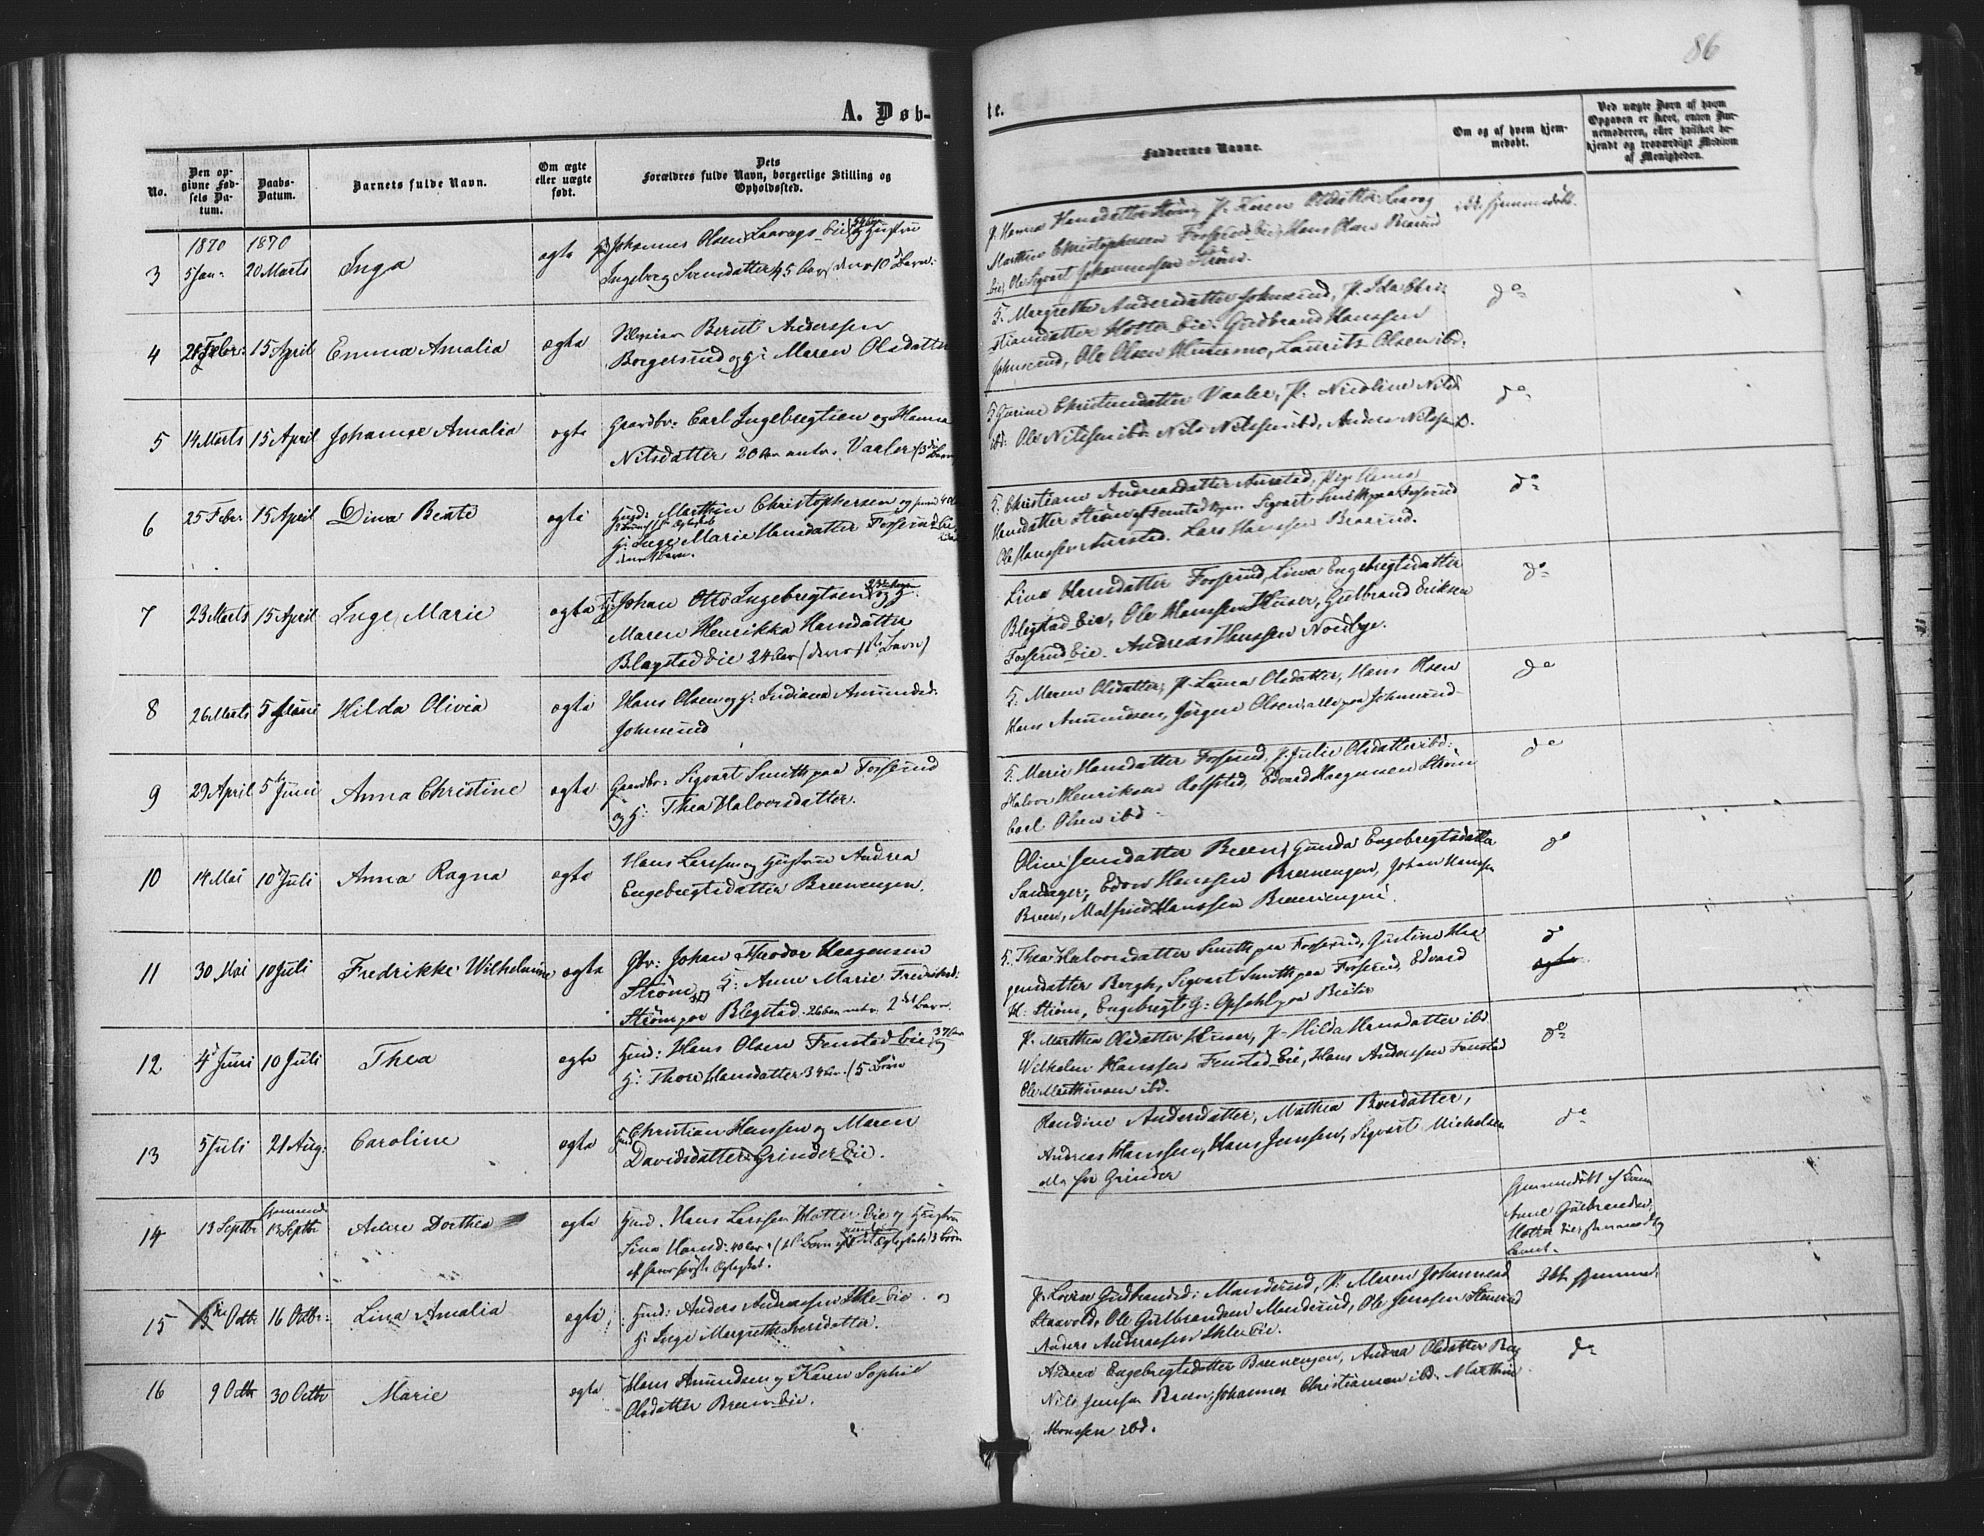 86
A. Døb-
te.
No.
Den opgivne Fødsels Datum.
Daabs-Datum.
Barnets fulde Navn.
Om ægte eller uægte født.
Dets Forældres fulde Navn, borgerlige Stilling og Opholdssted.
Faddernes Navne.
Om og af hvem hjemmedøbt.
Ved uægte Børn af hvem Opgaven er skeet, enten Barnemoderen, eller hvilket bekjendt og troværdigt Medlem af Menigheden.
1870 1870
3 5 Jan: 20 Marts Inga ægte
Johannes Olsen Laavags Eie og Hustru
Ingeborg Svensdatter 45 Aar denn 10 Barn
Hansdatter Strøm, P. Karen Olsdatter Laavag
Marthin Christophersen Fosserud Eie, Hans Olsen Braarud
Eie, Ole Sigvart Johannessen Strøm.
ikke hjemmedøbt.
4 Febr: 15 April Emma Amalia ægte
Bernt Anderssen
Borgersrud og H: Maren Olsdatter
G. Margrethe Andersdatter Johnsrud, P. Ida Chri-
stiansdatter Hotter Eie. Gudbrand Hanssen
Johnsrud, Ole Olsen, Laurits Olsen ibd.
do
5 14 Marts 15 April Johanne Amalia ægte
Gaardbr: Carl Ingebregtsen og Hanna
Nilsdatter 20 Aar Vaaler (3die Barn
G. Gurine Christensdatter Vaaler, P. Nicoline Nilsd
ibd: Ole Nilssen ibd. Nils Nilssen ibd, Anders Nilssen ibd.
do
6 25 Febr: 15 April Dina Beate ægte
Husd: Marthin Christophersen og
H: Inge Marie Hansdatter Fosserud Eie
G. Christiane Andreasdatter Aurstad, Pige
Hansdatter Strøm, Sigvart Smith paa Fosserud
Ole Hanssen Aurstad. Lars Hanssen Braarud.
do
7 23 Marts 15 April Inge Marie ægte
Johan Otto Ingebregtsen og H.
Maren Henrikka Hansdatter
Blegstad Eie 24 Aar (deres 1ste Barn)
Lina Hansdatter Fosserud, Lina Engebregtsdatter
Blegstad Eie, Ole Hanssen Huser, Gulbrand Eriksen
Fosserud Eie. Andreas Hanssen Nordbye.
do
8 26 Marts 5 Juni Hilda Olivia ægte
Hans Olsen og H: Indiana Amundsd:
Johnsrud
G. Maren Olsdatter, P. Lina Olsdatter, Hans Olsen
Hans Amundsen, Jørgen Olsen, alle paa Johnsrud
do
9 29 April 5 Juni Anna Christine ægte
Gaardbr: Sigvart Smith paa Fosserud
og H: Thea Halvorsdatter.
G. Marie Hansdatter Fosserud, P. Julie Olsdatter ibd:
Halvor Henriksen Rolfstad, Edvard Haagensen Strøm
Carl Olsen ibd.
do
10 14 Mai 10 Juli Anna Ragna ægte
Hans Larssen og Hustru Andrea
Engebregtsdatter Breenengen.
Oline Jensdatter Breen, Gunda Engebregtsdatter
Sandager, Edvin Hanssen Breenengen, Johan Hanssen
Breen, Malfrid Hanssen Breenengen.
do
11 30 Mai 10 Juli Fredrikke Wilhelmine ægte
Gbr: Johan Theodor Haagensen
Strøm og H: Anne Marie Fredriksd:
Strøm paa Blegstad. 26 Aar 2det Barn.
G. Thea Halvorsdatter Smith paa Fosserud, Gustine Haa-
gensdatter Borgh, Sigvart Smith paa Fosserud, Edvard
H. Strøm, Engebregt G: Opsahl paa
do
ægte
12 4 Juni 10 Juli Thea ægte
Husd: Hans Olsen Fenstad Eie 37 Aar og
H: Thore Hansdatter 34 Aar. (5 Børn
P. Marthea Olsdatter Huser, P. Hilda Hansdatter ibd
Wilhelm Hanssen Fenstad Eie, Hans Anderssen Fenstad
Ole Marthinsen ibd.
do
13 5 Juli 21 Aug: Caroline ægte
Husd. Christian Hanssen og Maren
Davidsdatter Grinder Eie.
Randine Andersdatter, Mathea Boersdatter,
Andreas Hanssen, Hans Jenssen, Sigvart Michelsen
alle fra Grinder
do
14 13 Septbr hjemmed 13 Septbr Anne Dorthea ægte
Husd. Hans Larssen Hotter Eie og Hustru
Lina Hansd: 40 Aar
af hans første Ægteskab.
Hjemmedøbt af
Anne Gulbrandsd.
Hotter Eie, hjemmedøbt
Barnet.
15 Octbr 16 Octbr: Lina Amalia ægte
Husd: Anders Andreassen Skle Eie og
H: Inge Margrethe Iversdatter.
P. Lovise Gudbrandsd: Manderud, P. Maren Johannesd
Staavold, Ole Gulbrandsen Manderud, Ole Jenssen Stenerud
Anders Andreassen Skle Eie.
ikke hjemme.
16 9 Octbr 30 Octbr Marie ægte
Hans Amundsen og Karen Sophie
Olsdatter Breen Eie.
Andrea Engebregtsdatter Breenengen, Andrea Olsdatter
Nils Jenssen Breen, Johannes Christiansen ibd. Marthin
Monssen ibd.
do